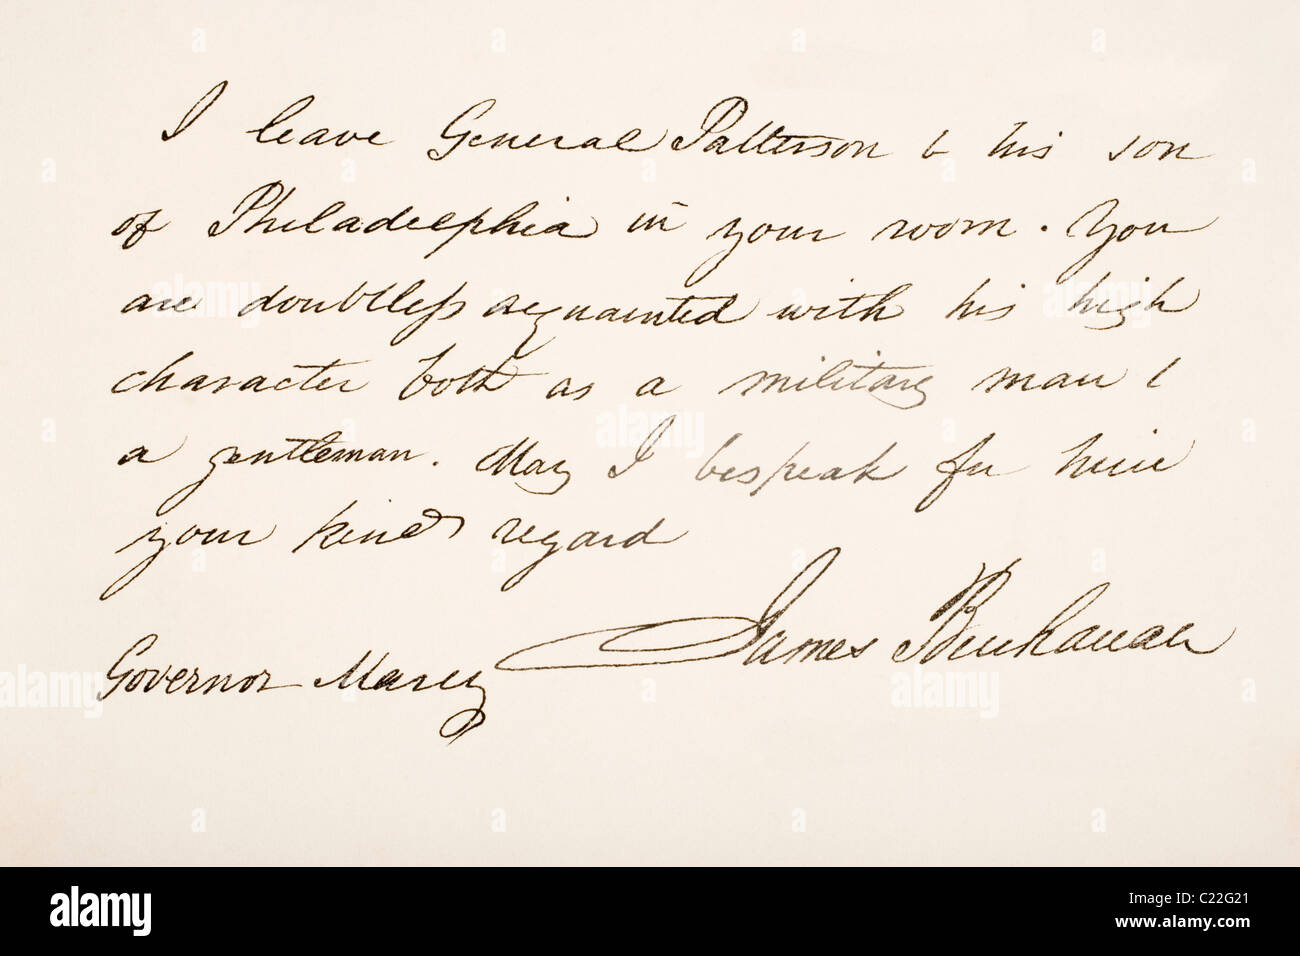 I leave General Patterson & his son
of Philadelphia in your room. You
are doubtless acquainted with his high
character both as a military man &
a gentleman. May I bespeak for him
your kind regard
James Buchanan
Governor Marcy
alamy
Image ID: C22G21
www.alamy.com